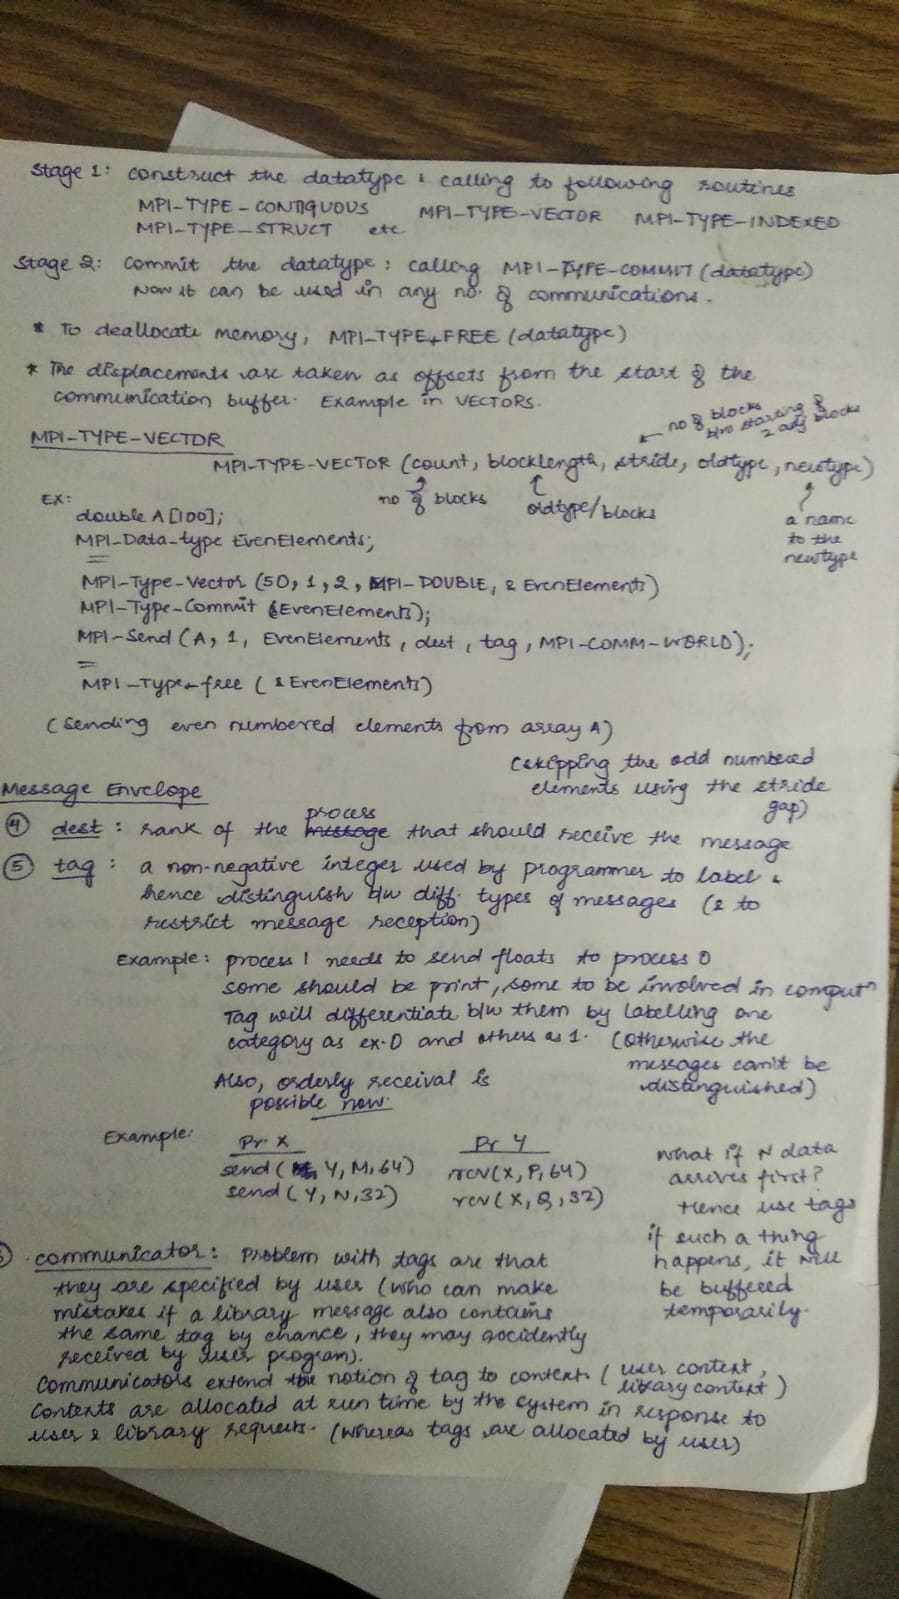 Stage 1: construct the datatype: calling to following routines
MPI-TYPE-CONTIGUOUS MPI-TYPE-VECTOR MPI-TYPE-INDEXED
MPI-TYPE-STRUCT etc
Stage 2: commit the datatype: calling MPI-TYPE-COMMIT (datatype)
Now it can be used in any no. of communications.
* To deallocate memory, MPI-TYPE-FREE (datatype)
* The displacements are taken as offsets from the start of the
communication buffer. Example in VECTORS.
no of blocks
b/w starting of
2 adj blocks
MPI-TYPE-VECTOR
MPI-TYPE-VECTOR (count, blocklength, stride, oldtype, newtype)
no of blocks oldtype/blocks
a name
to the
newtype
EX:
double A[100];
MPI-Data-type EvenElements;
=
MPI-Type-Vector (50, 1, 2, MPI-DOUBLE, & EvenElements)
MPI-Type-Commit (&EvenElements);
MPI-Send (A, 1, EvenElements, dest, tag, MPI-COMM-WORLD);
=
MPI-Type-free (& EvenElements)
(Sending even numbered elements from array A)
(skipping the odd numbered
elements using the stride
gap)
Message Envelope
④ dest: rank of the message process that should receive the message
⑤ tag: a non-negative integer used by programmer to label &
hence distinguish b/w diff. types of messages (& to
restrict message reception)
Example: process 1 needs to send floats to process 0
some should be print, some to be involved in computn
Tag will differentiate b/w them by labelling one
category as ex. 0 and others as 1. (Otherwise the
messages can't be
distinguished)
Also, orderly receival is
possible now.
Example: Pr. X Pr Y
send( Y, M, 64) rcv(X, P, 64)
send(Y, N, 32) rcv(X, Q, 32)
What if N data
arrives first?
Hence use tags
if such a thing
happens, it will
be buffered
temporarily.
communicator: Problem with tags are that
they are specified by user (who can make
mistakes if a library message also contains
the same tag by chance, they may accidently
received by user program).
Communicators extend the notion of tag to context. (user context,
library context)
Contexts are allocated at run time by the system in response to
user & library requests. (Whereas tags are allocated by user)